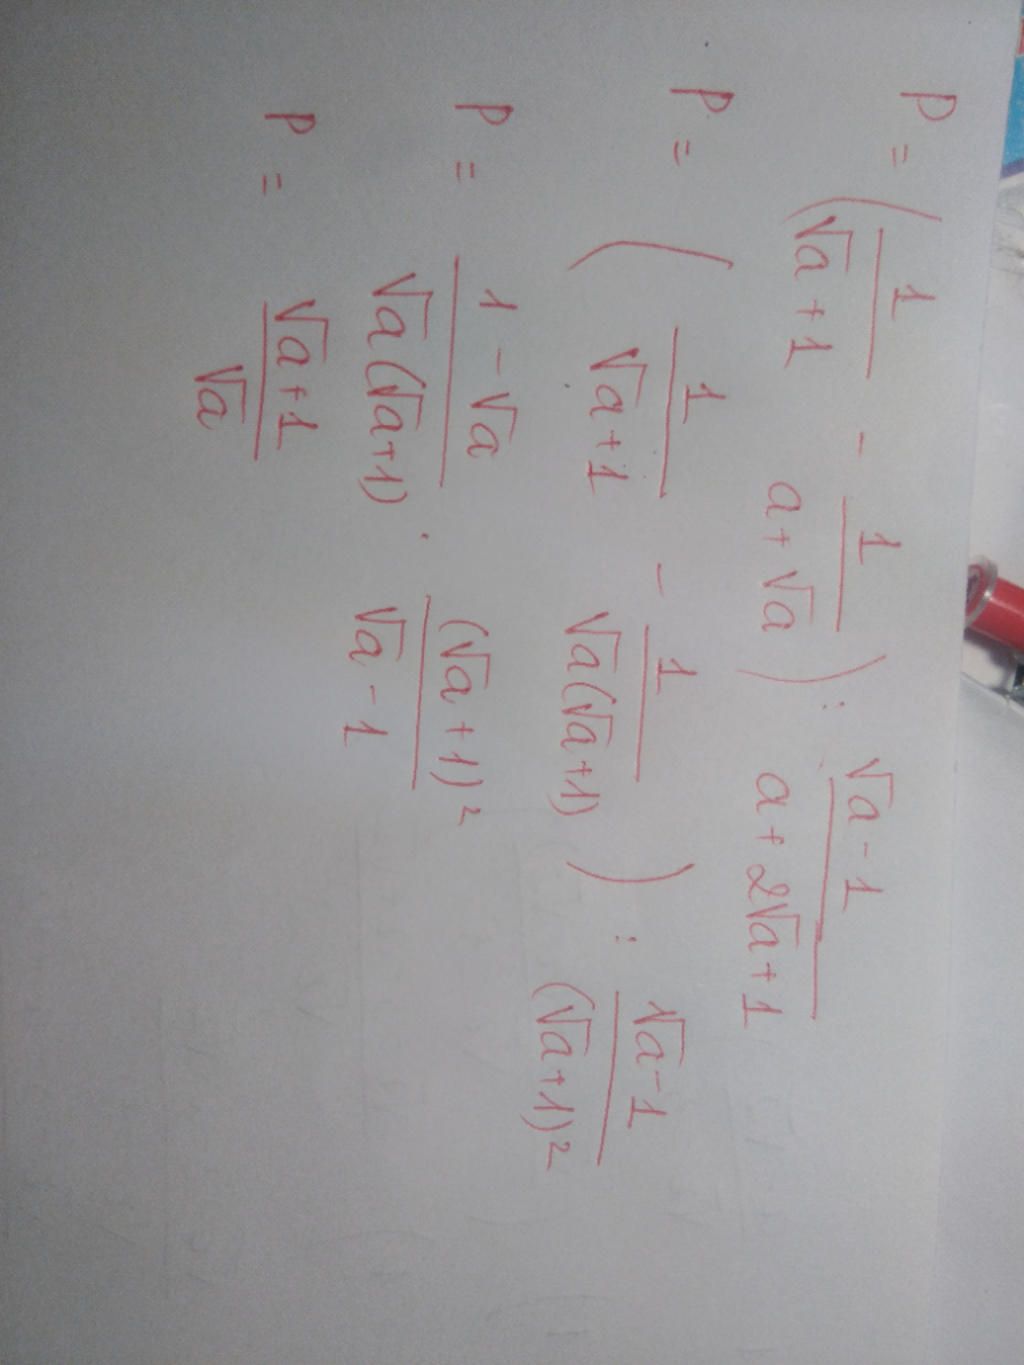 P = ( 1/(√a + 1) - 1/(a + √a) ) : (√a - 1)/(a + 2√a + 1)
P = ( 1/(√a + 1) - 1/(√a(√a + 1)) ) : (√a - 1)/(√a + 1)²
P = (1 - √a)/(√a(√a + 1)) . (√a + 1)²/(√a - 1)
P = (√a + 1)/√a